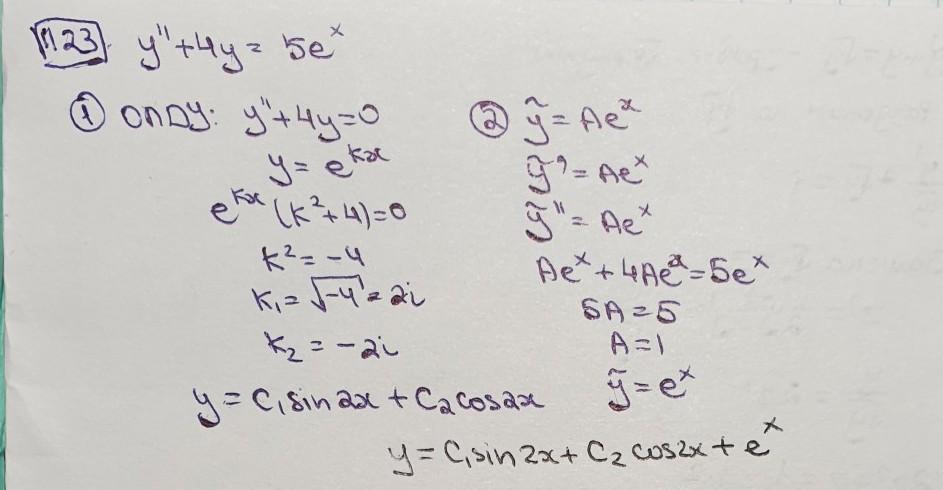 11.23. y'' + 4y = 5e^x
① ОЛДУ: y'' + 4y = 0
y = e^{kx}
e^{kx}(k² + 4) = 0
k² = -4
k₁ = √-4 = 2i
k₂ = -2i
y = C₁sin2x + C₂cos2x
② ỹ = Ae^x
ỹ' = Ae^x
ỹ'' = Ae^x
Ae^x + 4Ae^x = 5e^x
5A = 5
A = 1
ỹ = e^x
y = C₁sin2x + C₂cos2x + e^x